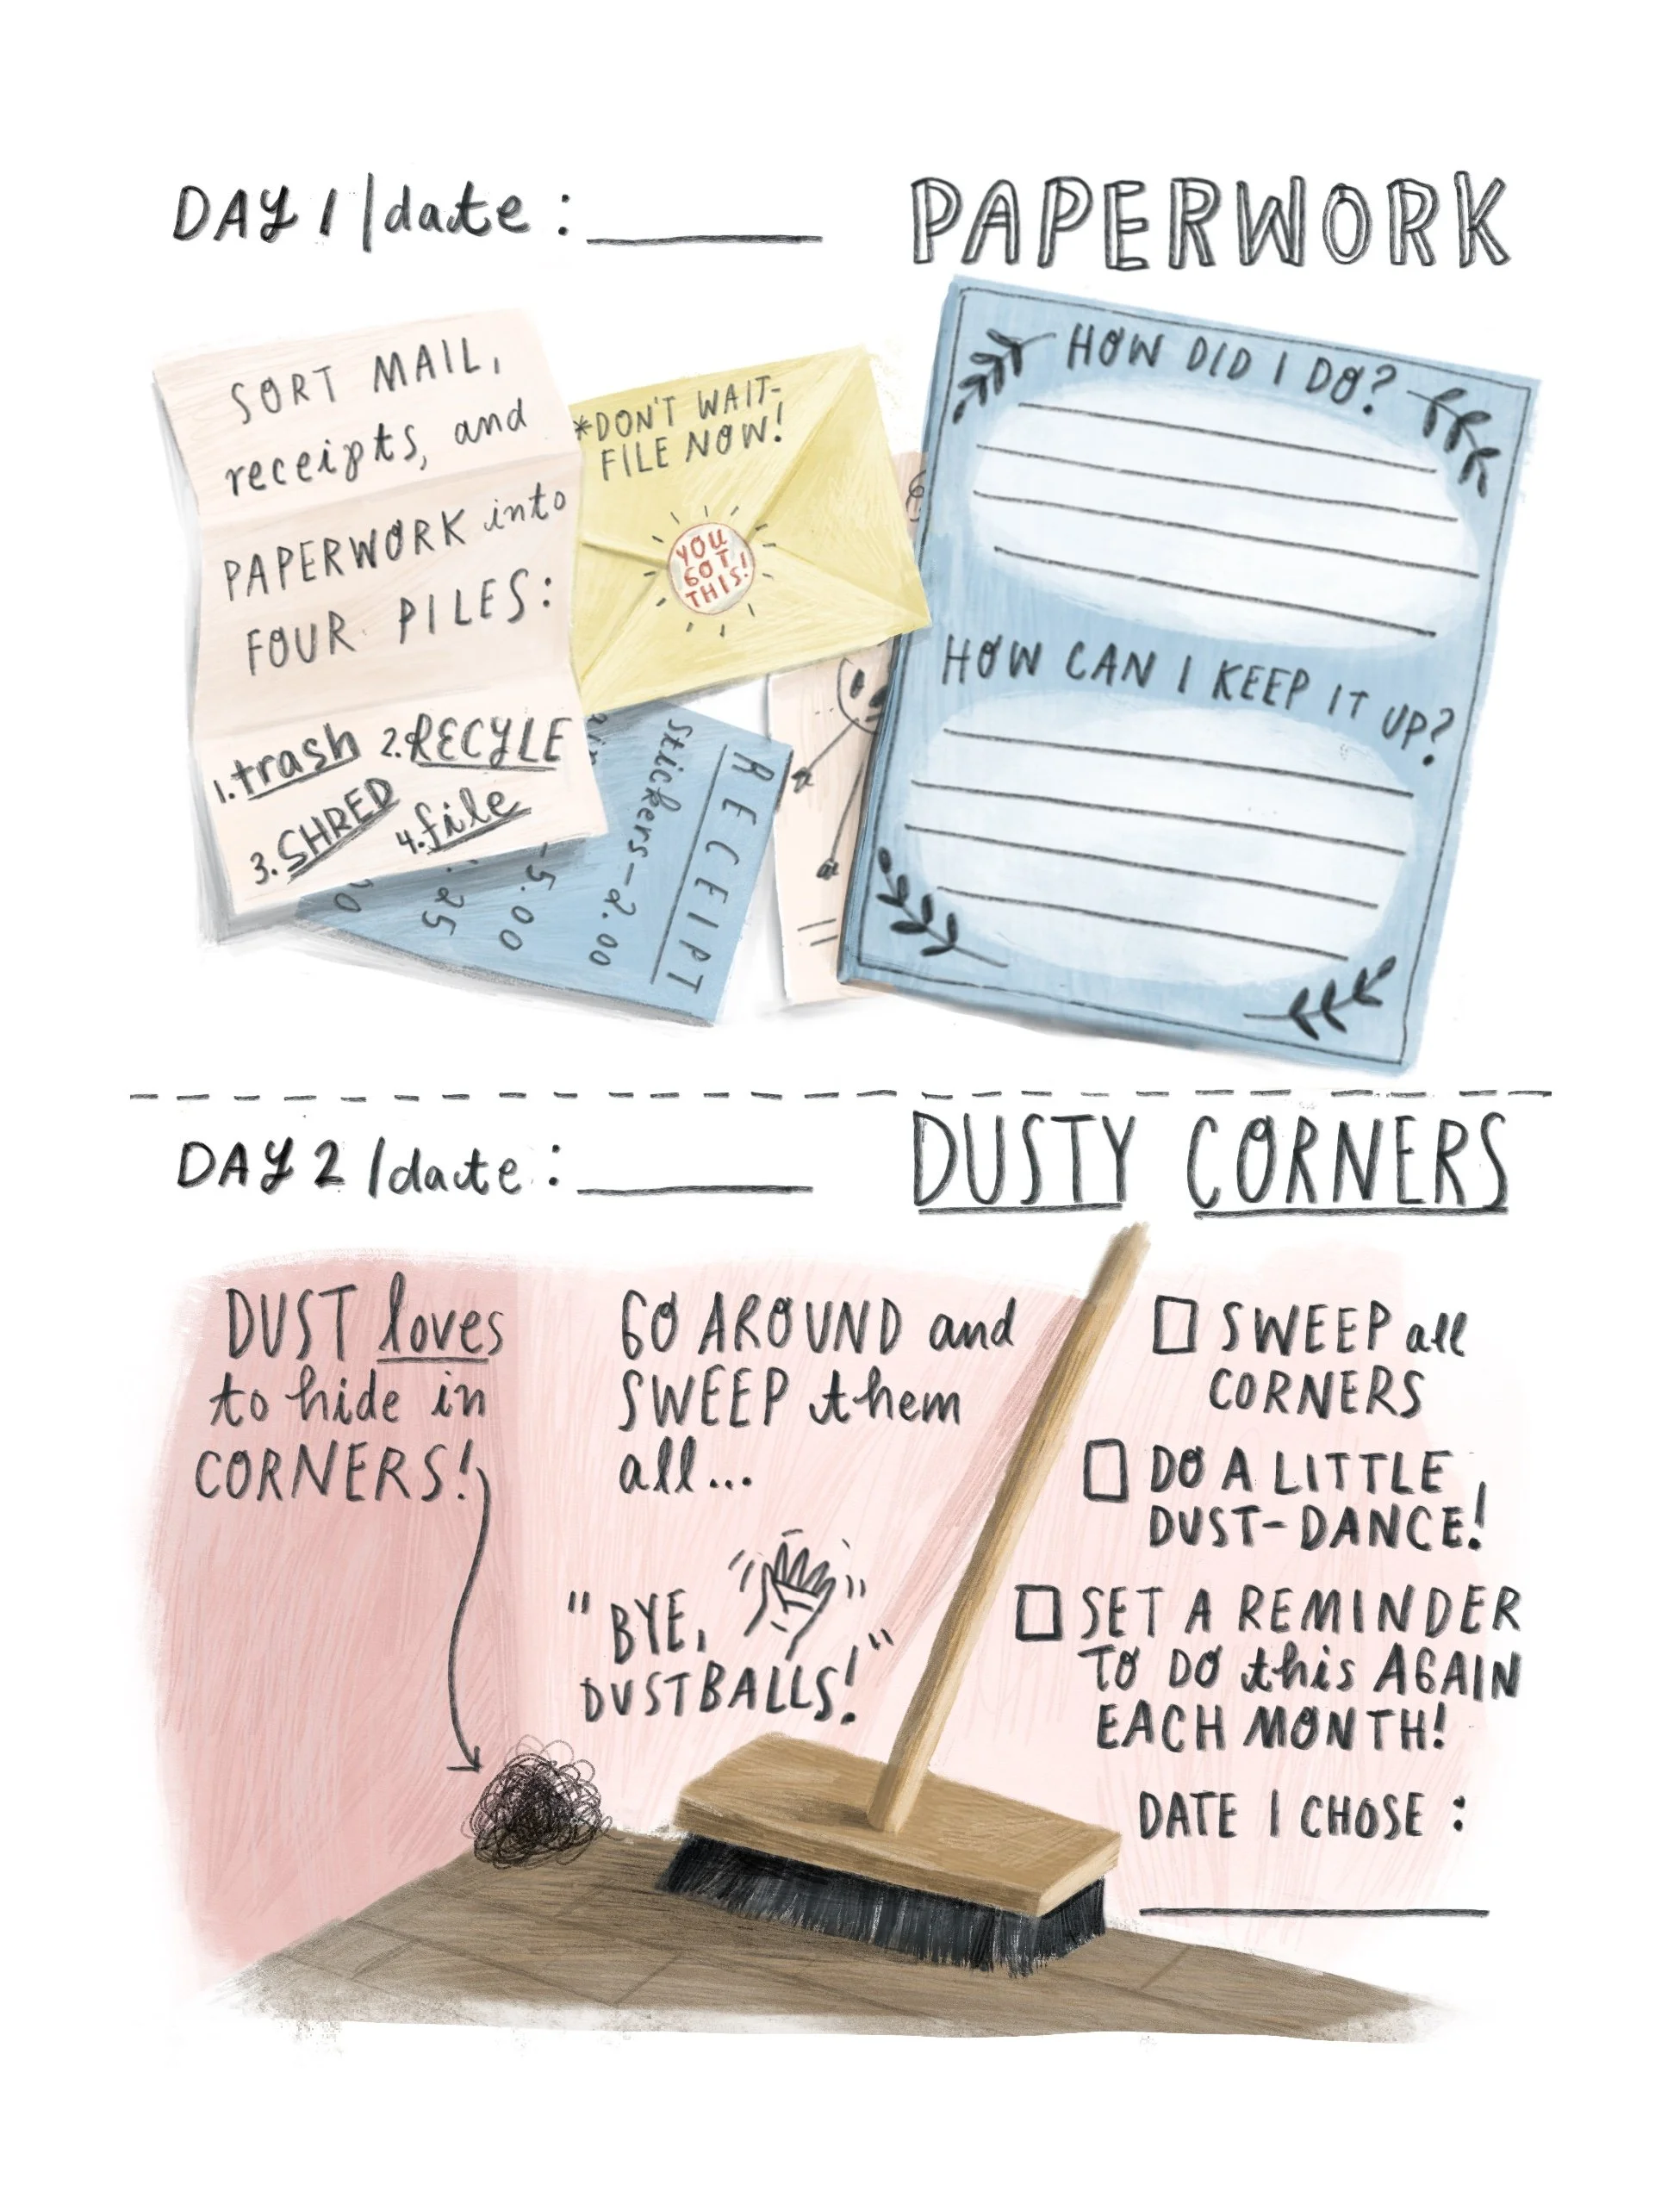 DAY 1 / date :
PAPERWORK
SORT MAIL,
receipts, and
PAPERWORK into
FOUR PILES:
1. trash 2. RECYLE
3. SHRED 4. file
*DON'T WAIT-
FILE NOW!
YOU
GOT
THIS!
RECEIPT
Stickers-2.00
-5.00
.25
HOW DID I DO?
HOW CAN I KEEP IT UP?
DAY 2 / date :
DUSTY CORNERS
DUST loves
to hide in
CORNERS!
GO AROUND and
SWEEP them
all...
"BYE,
DUSTBALLS!"
SWEEP all
CORNERS
DO A LITTLE
DUST-DANCE!
SET A REMINDER
TO DO this AGAIN
EACH MONTH!
DATE I CHOSE :